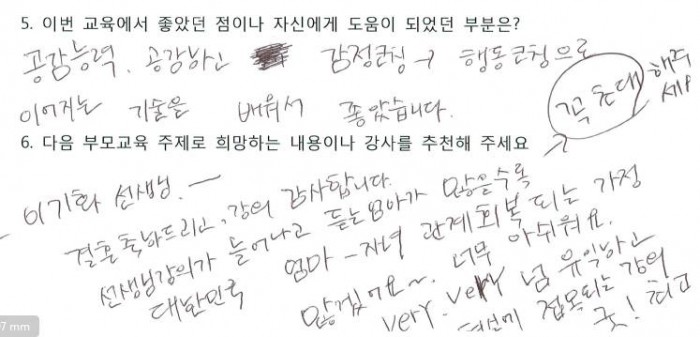 5. 이번 교육에서 좋았던 점이나 자신에게 도움이 되었던 부분은?
공감능력, 공감하신 감정코칭 → 행동코칭으로
이어지는 기술을 배워서 좋았습니다.
꼭 초대 해주
세요
6. 다음 부모교육 주제로 희망하는 내용이나 강사를 추천해 주세요
이기화 선생님.
결혼 축하드리고, 강의 감사합니다.
선생님강의가 늘어나고 듣는 엄마가 많을수록
대한민국 엄마 - 자녀 관계회복 되는 가정
많겠어요~. 너무 아쉬워요.
very. very 넘 유익하고
접목되는 강의
굿! 최고
07 mm